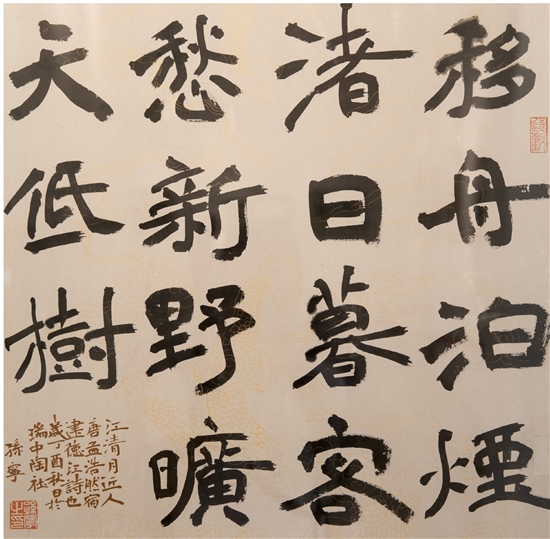 移舟泊煙
渚日暮客
愁新野曠
天低樹
江清月近人
唐孟浩然宿
建德江詩也
歲丁酉秋日於
瑞中陶社
孫寧